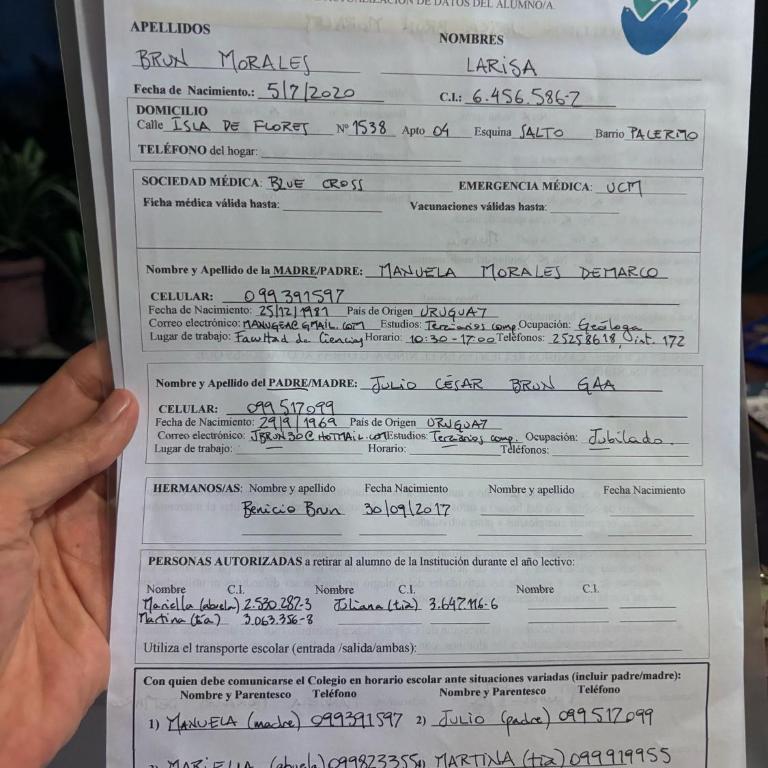 ACTUALIZACIÓN DE DATOS DEL ALUMNO/A.
APELLIDOS NOMBRES
BRUN MORALES LARISA
Fecha de Nacimiento.: 5/7/2020 C.I.: 6.456.586-7
DOMICILIO
Calle ISLA DE FLORES Nº 1538 Apto 04 Esquina SALTO Barrio PALERMO
TELÉFONO del hogar:
SOCIEDAD MÉDICA: BLUE CROSS EMERGENCIA MÉDICA: UCM
Ficha médica válida hasta: Vacunaciones válidas hasta:
Nombre y Apellido de la MADRE/PADRE: MANUELA MORALES DEMARCO
CELULAR: 099391597
Fecha de Nacimiento: 25/12/1981 País de Origen URUGUAY
Correo electrónico: MANUGEA@GMAIL.COM Estudios: Terciarios comp. Ocupación: Geóloga
Lugar de trabajo: Facultad de Ciencias Horario: 10:30-17:00 Teléfonos: 25258618, int. 172
Nombre y Apellido del PADRE/MADRE: JULIO CÉSAR BRUN GAA
CELULAR: 099517099
Fecha de Nacimiento: 29/9/1969 País de Origen URUGUAY
Correo electrónico: JBRUN30@HOTMAIL.COM Estudios: Terciarios comp. Ocupación: Jubilado.
Lugar de trabajo: Horario: Teléfonos:
HERMANOS/AS: Nombre y apellido Fecha Nacimiento Nombre y apellido Fecha Nacimiento
Benicio Brun 30/09/2017
PERSONAS AUTORIZADAS a retirar al alumno de la Institución durante el año lectivo:
Nombre C.I. Nombre C.I. Nombre C.I.
Mariella (abuela) 2.530.287-3 Juliana (tía) 3.647.116-6
Martina (tía) 3.063.356-8
Utiliza el transporte escolar (entrada /salida/ambas):
Con quien debe comunicarse el Colegio en horario escolar ante situaciones variadas (incluir padre/madre):
Nombre y Parentesco Teléfono Nombre y Parentesco Teléfono
1) MANUELA (madre) 099391597 2) JULIO (padre) 099517099
MARIELLA (abuela) 099823355 MARTINA (tía) 099919955